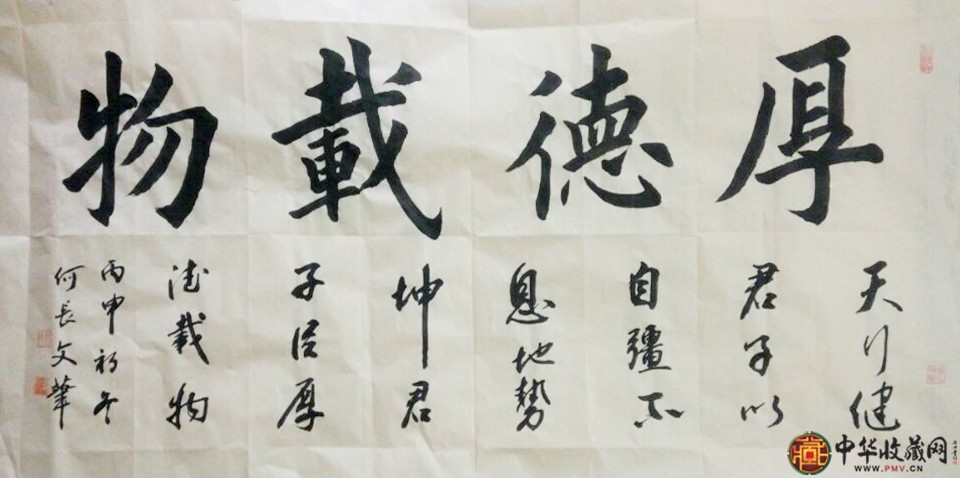 厚德載物
天行健
君子以
自彊不
息地勢
坤君
子㠯厚
德載物
丙申初冬
何長文
中华收藏网
WWW.PMV.CN